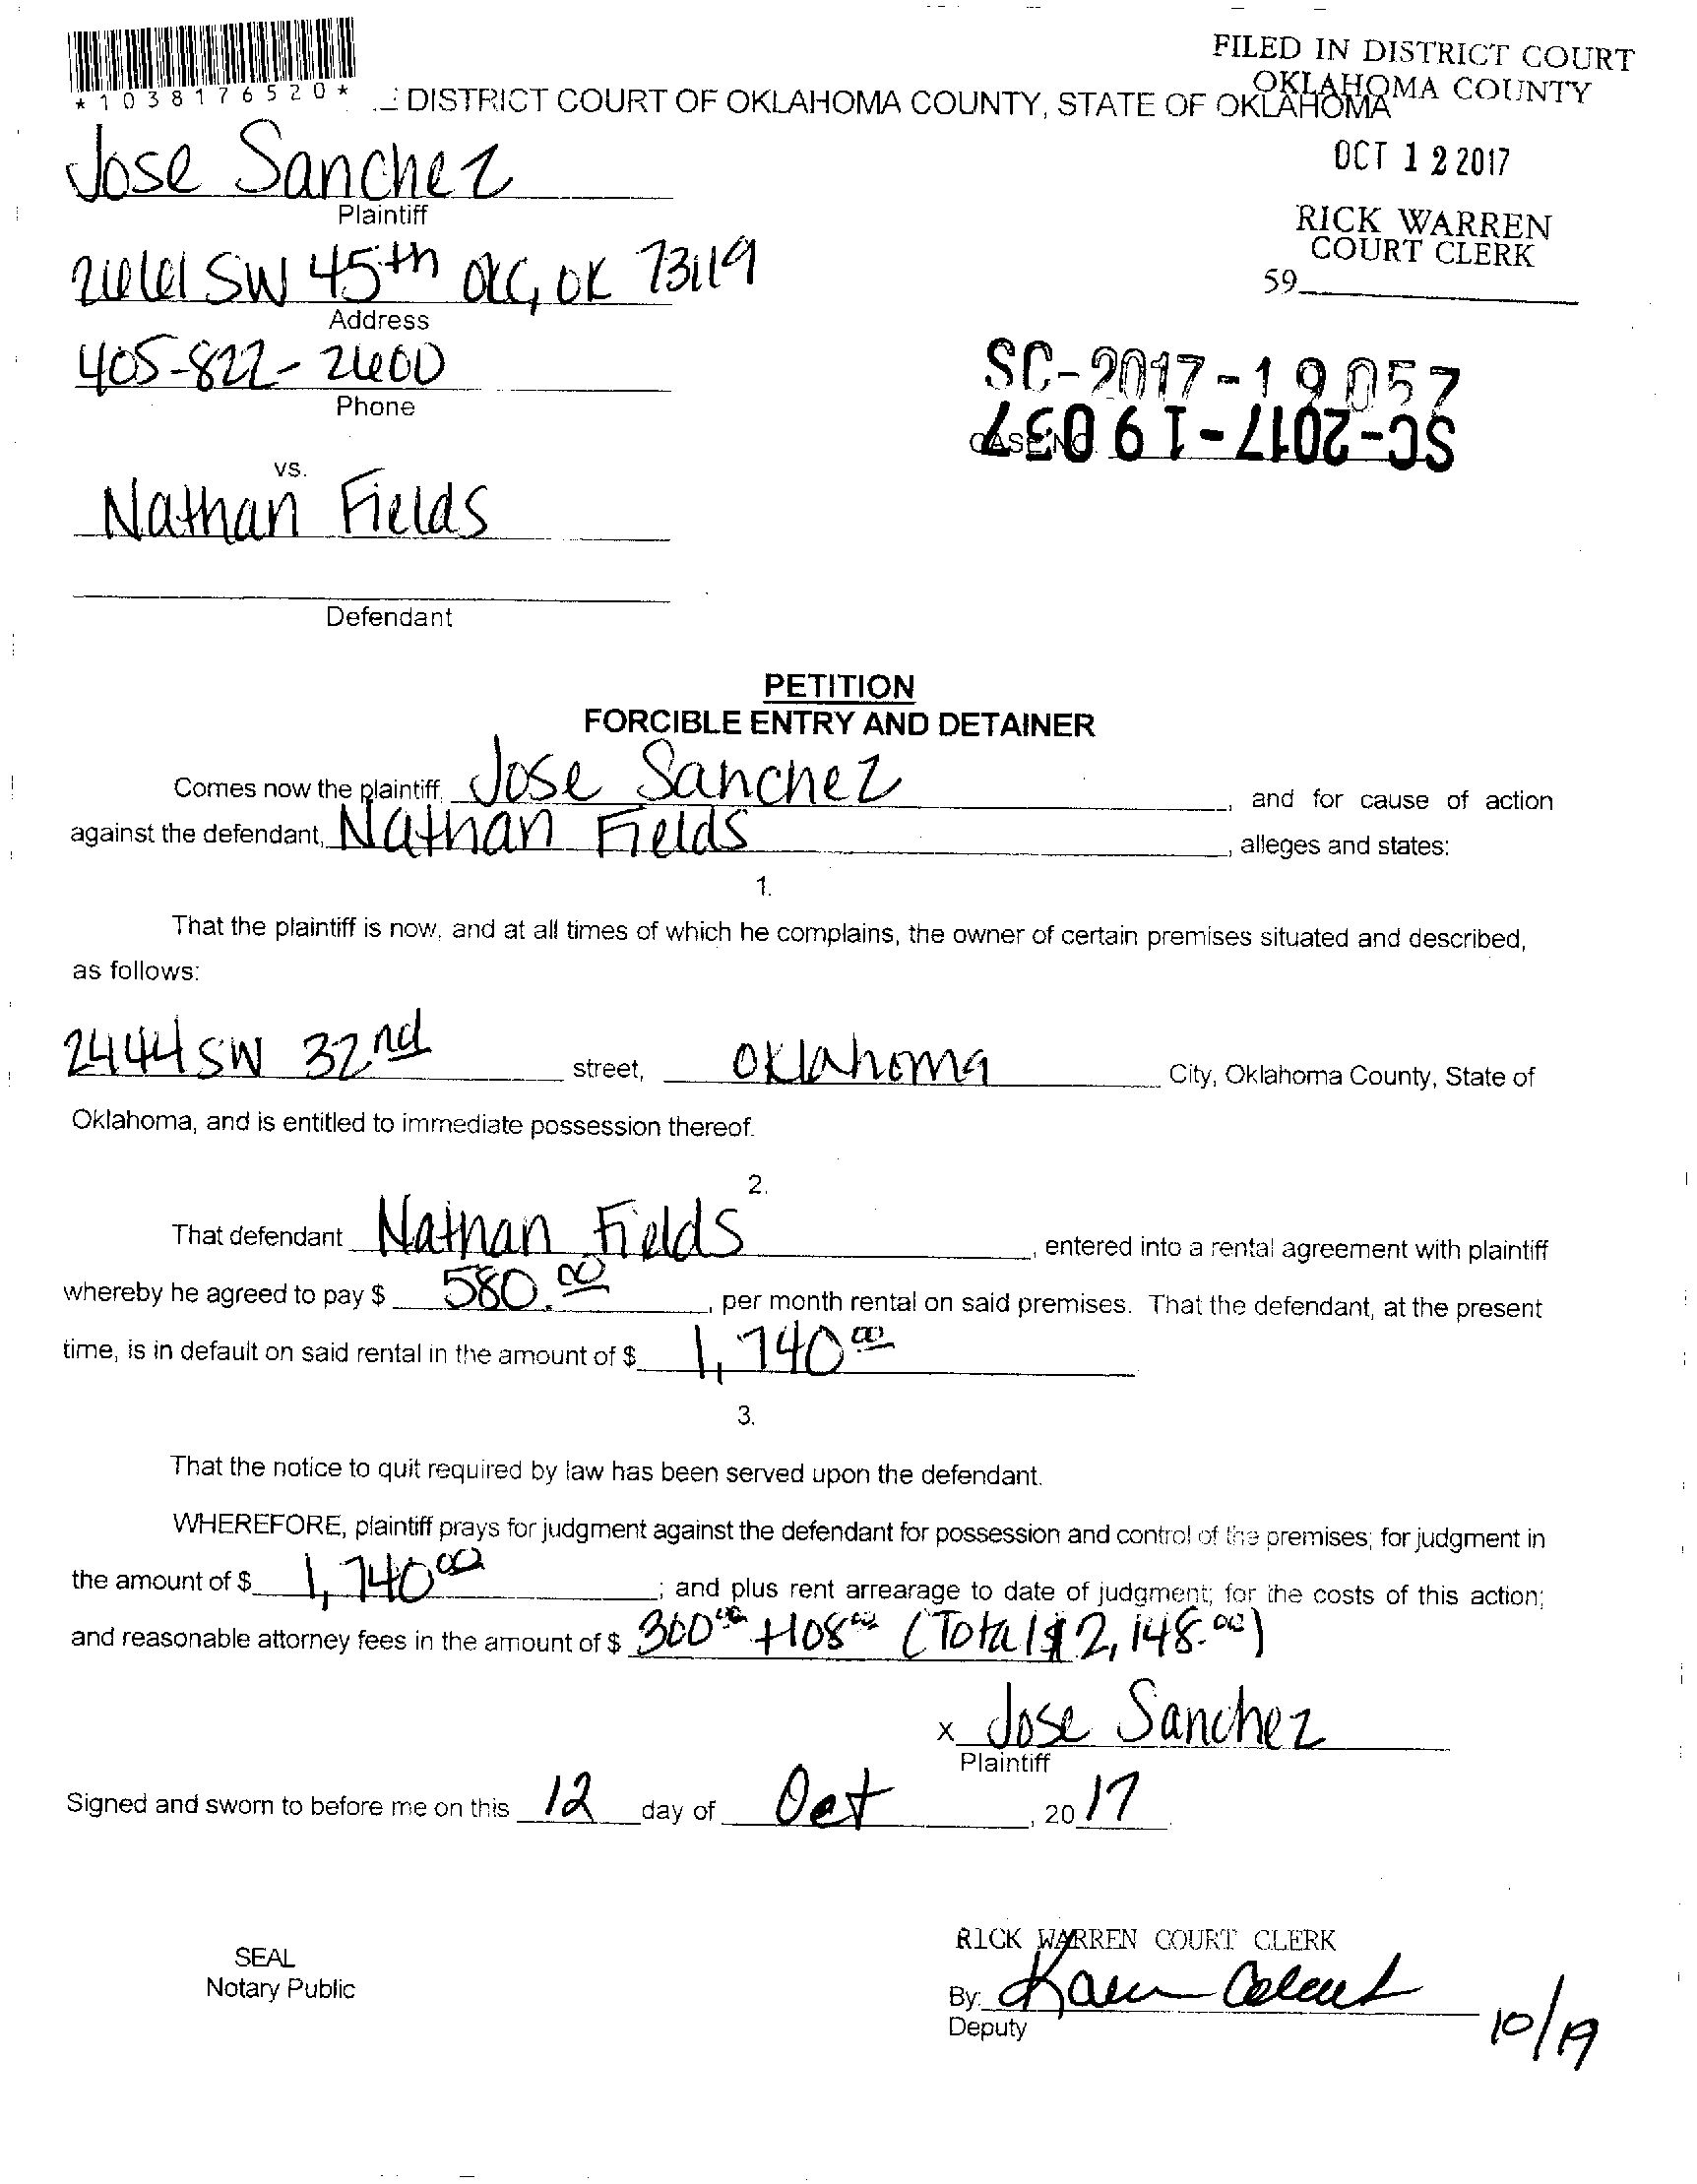 FILED IN DISTRICT COURT
OKLAHOMA COUNTY
*1038176520*
DISTRICT COURT OF OKLAHOMA COUNTY, STATE OF OKLAHOMA
OCT 12 2017
Jose Sanchez
Plaintiff
RICK WARREN
COURT CLERK
2661 SW 45th OKC, OK 73119
59
Address
405-822-2600
Phone
SC-2017-19057
CASE NO.
SC-2017-19037
vs.
Nathan Fields
Defendant
PETITION
FORCIBLE ENTRY AND DETAINER
Comes now the plaintiff, Jose Sanchez, and for cause of action
against the defendant, Nathan Fields, alleges and states:
1.
That the plaintiff is now, and at all times of which he complains, the owner of certain premises situated and described,
as follows:
2444 SW 32nd street, Oklahoma City, Oklahoma County, State of
Oklahoma, and is entitled to immediate possession thereof.
2.
That defendant Nathan Fields, entered into a rental agreement with plaintiff
whereby he agreed to pay $ 580.00, per month rental on said premises. That the defendant, at the present
time, is in default on said rental in the amount of $ 1,740 00
3.
That the notice to quit required by law has been served upon the defendant.
WHEREFORE, plaintiff prays for judgment against the defendant for possession and control of the premises; for judgment in
the amount of $ 1,740 00; and plus rent arrearage to date of judgment; for the costs of this action;
and reasonable attorney fees in the amount of $ 300 00 +108 00 (Total $ 2,148.00)
x Jose Sanchez
Plaintiff
Signed and sworn to before me on this 12 day of Oct, 20 17
RICK WARREN COURT CLERK
SEAL
Notary Public
By:
Deputy
10/19